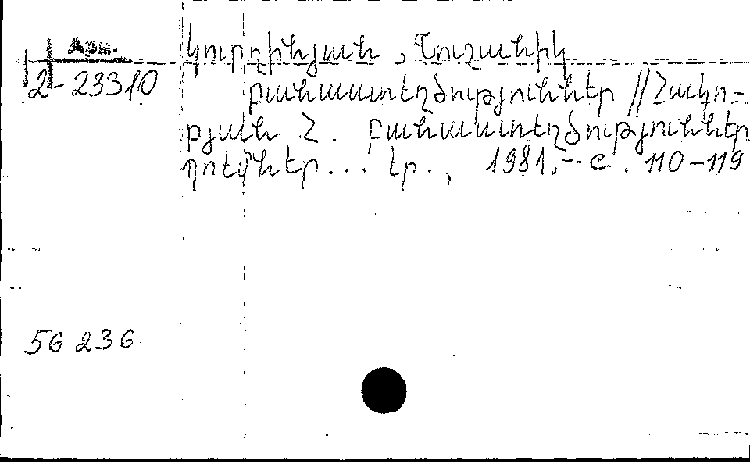 Арм.
2-23310
Կուրղինյան, Շուշանիկ
Բանաստեղծություններ // Հակո-
բյան Հ. Բանաստեղծություններ
պոեմներ... Եր., 1981.- с. 110-119
56 236